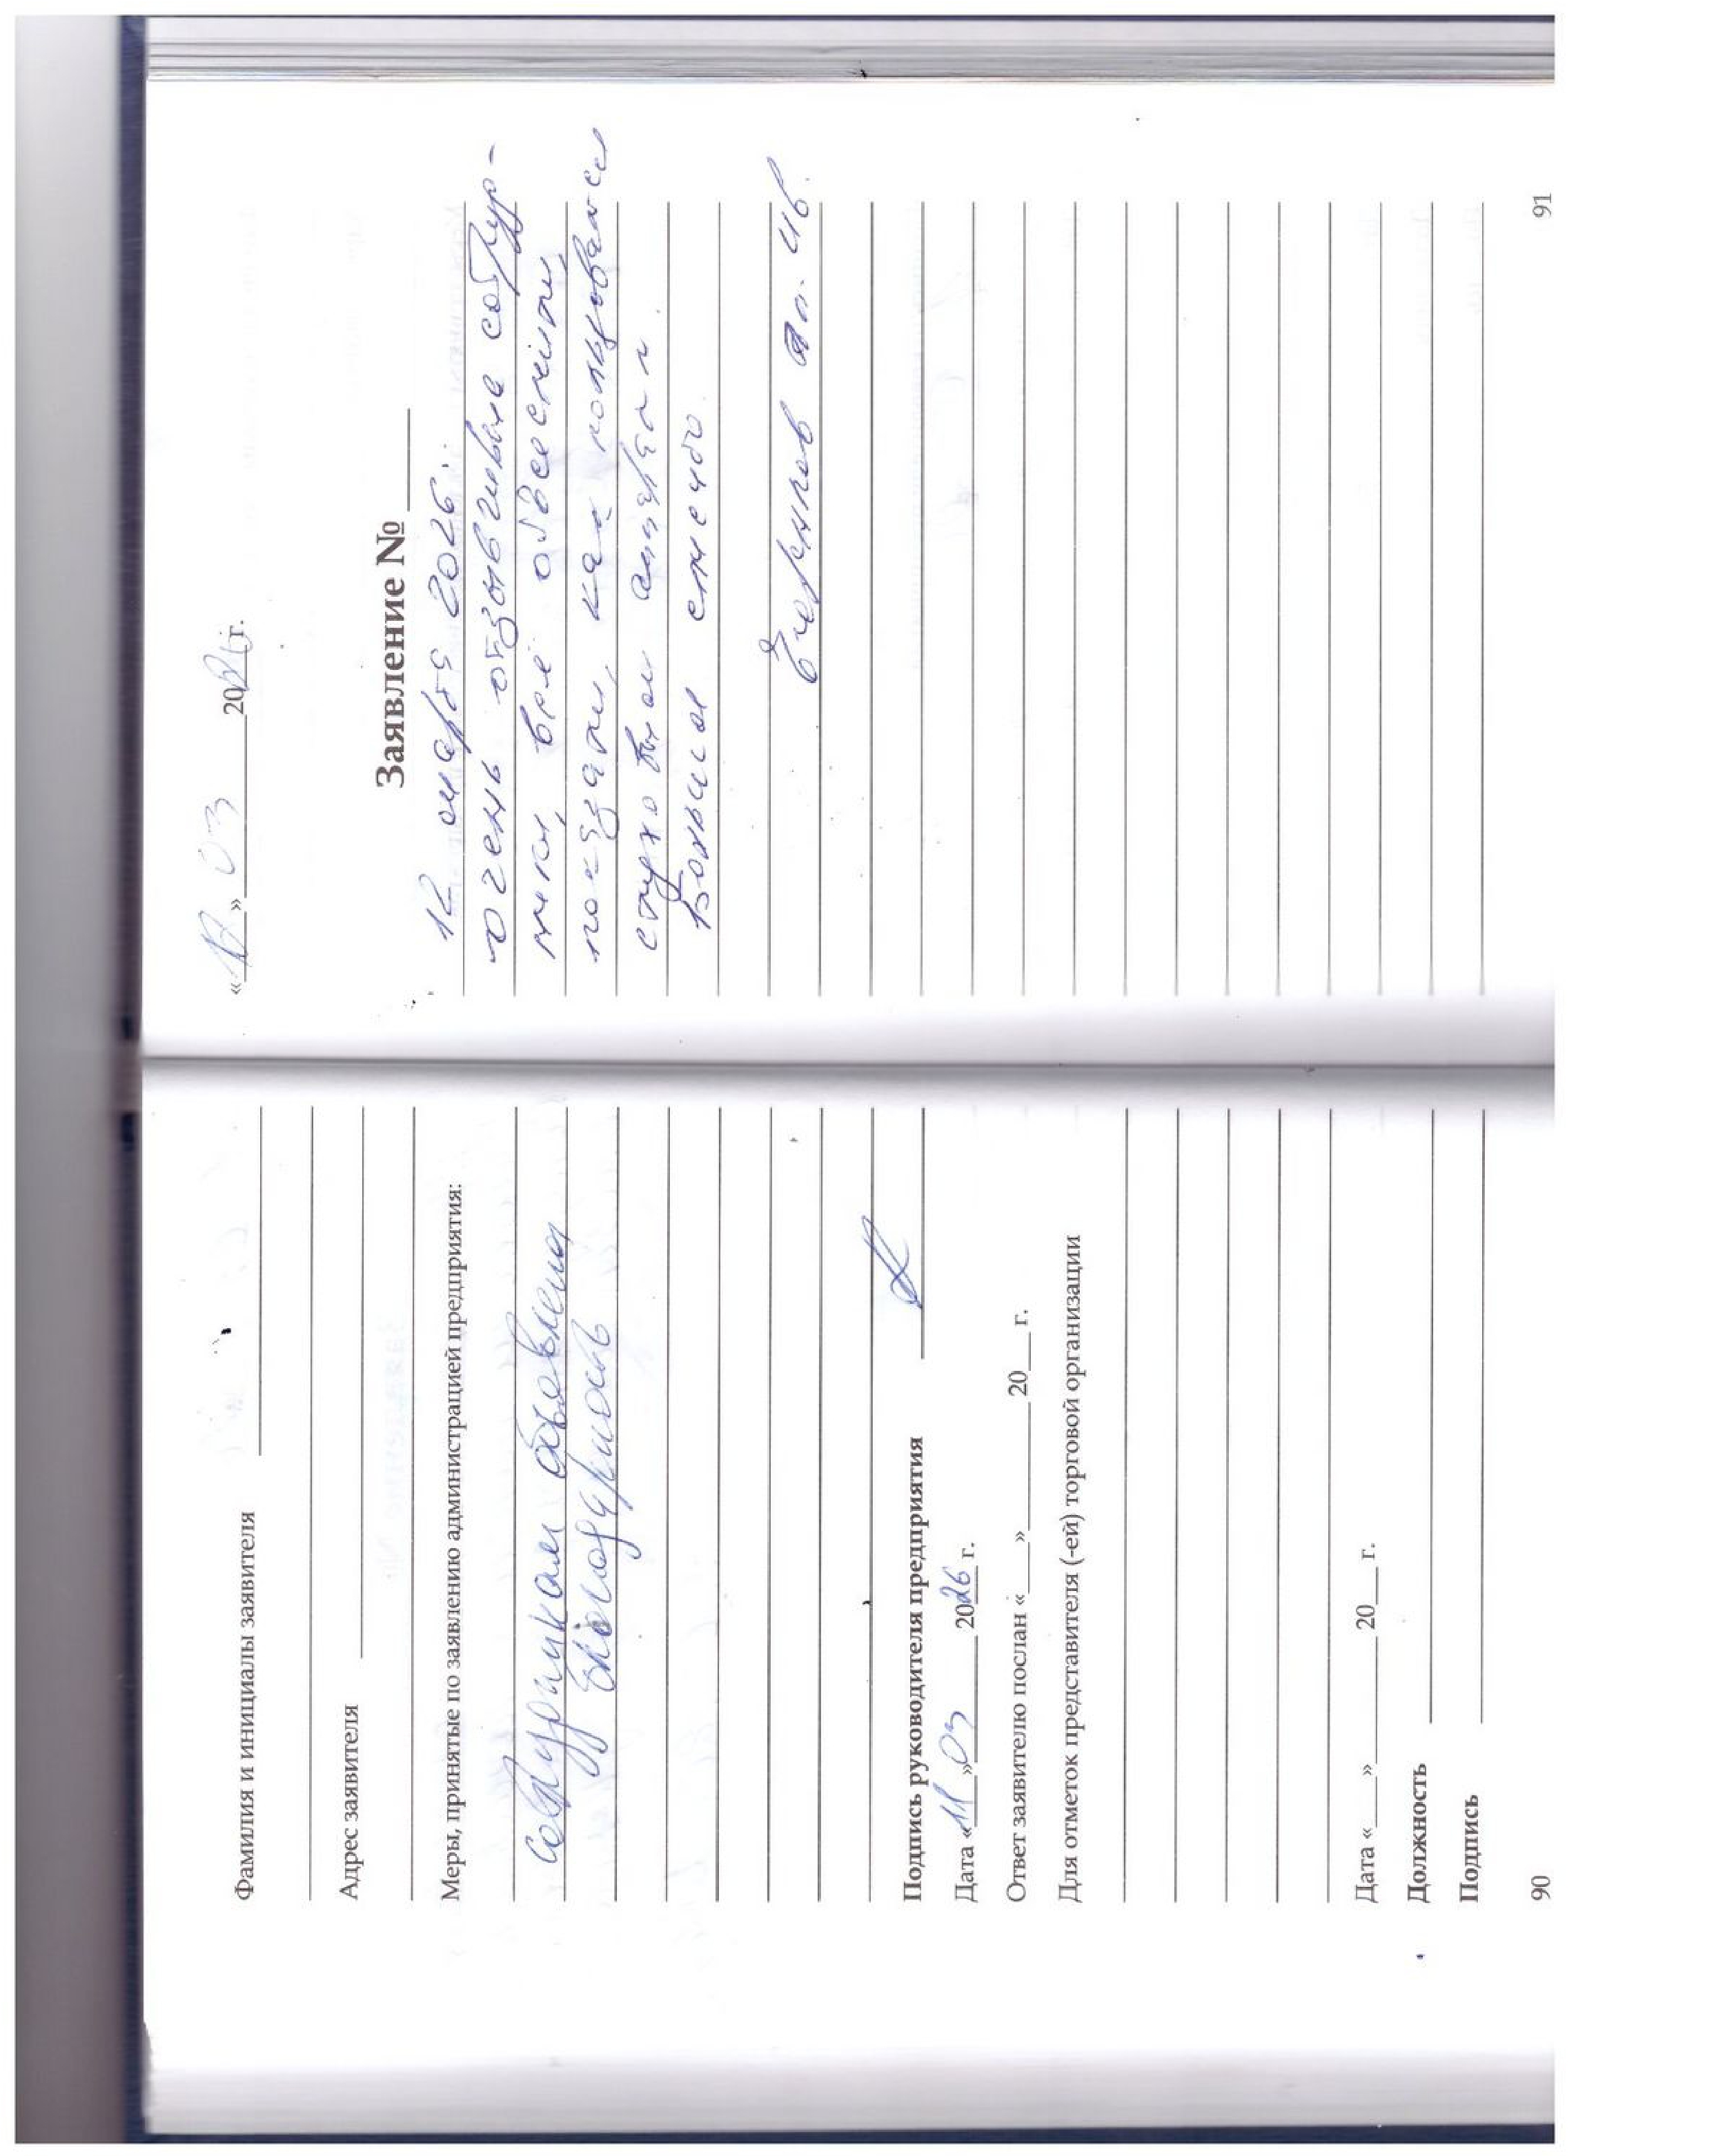 Фамилия и инициалы заявителя
Адрес заявителя
Меры, принятые по заявлению администрацией предприятия:
Сотрудникам объявлена
благодарность
Подпись руководителя предприятия
Дата «11» 03 2026 г.
Ответ заявителю послан «___» ______ 20__ г.
Для отметок представителя (-ей) торговой организации
Дата «___» ______ 20__ г.
Должность
Подпись
90
«12» 03 2026 г.
Заявление № ____
12 марта 2026.
очень отзывчивые сотруд-
ники, всё объяснили,
показали, как пользоваться
слуховым аппаратом
Большое спасибо.
91